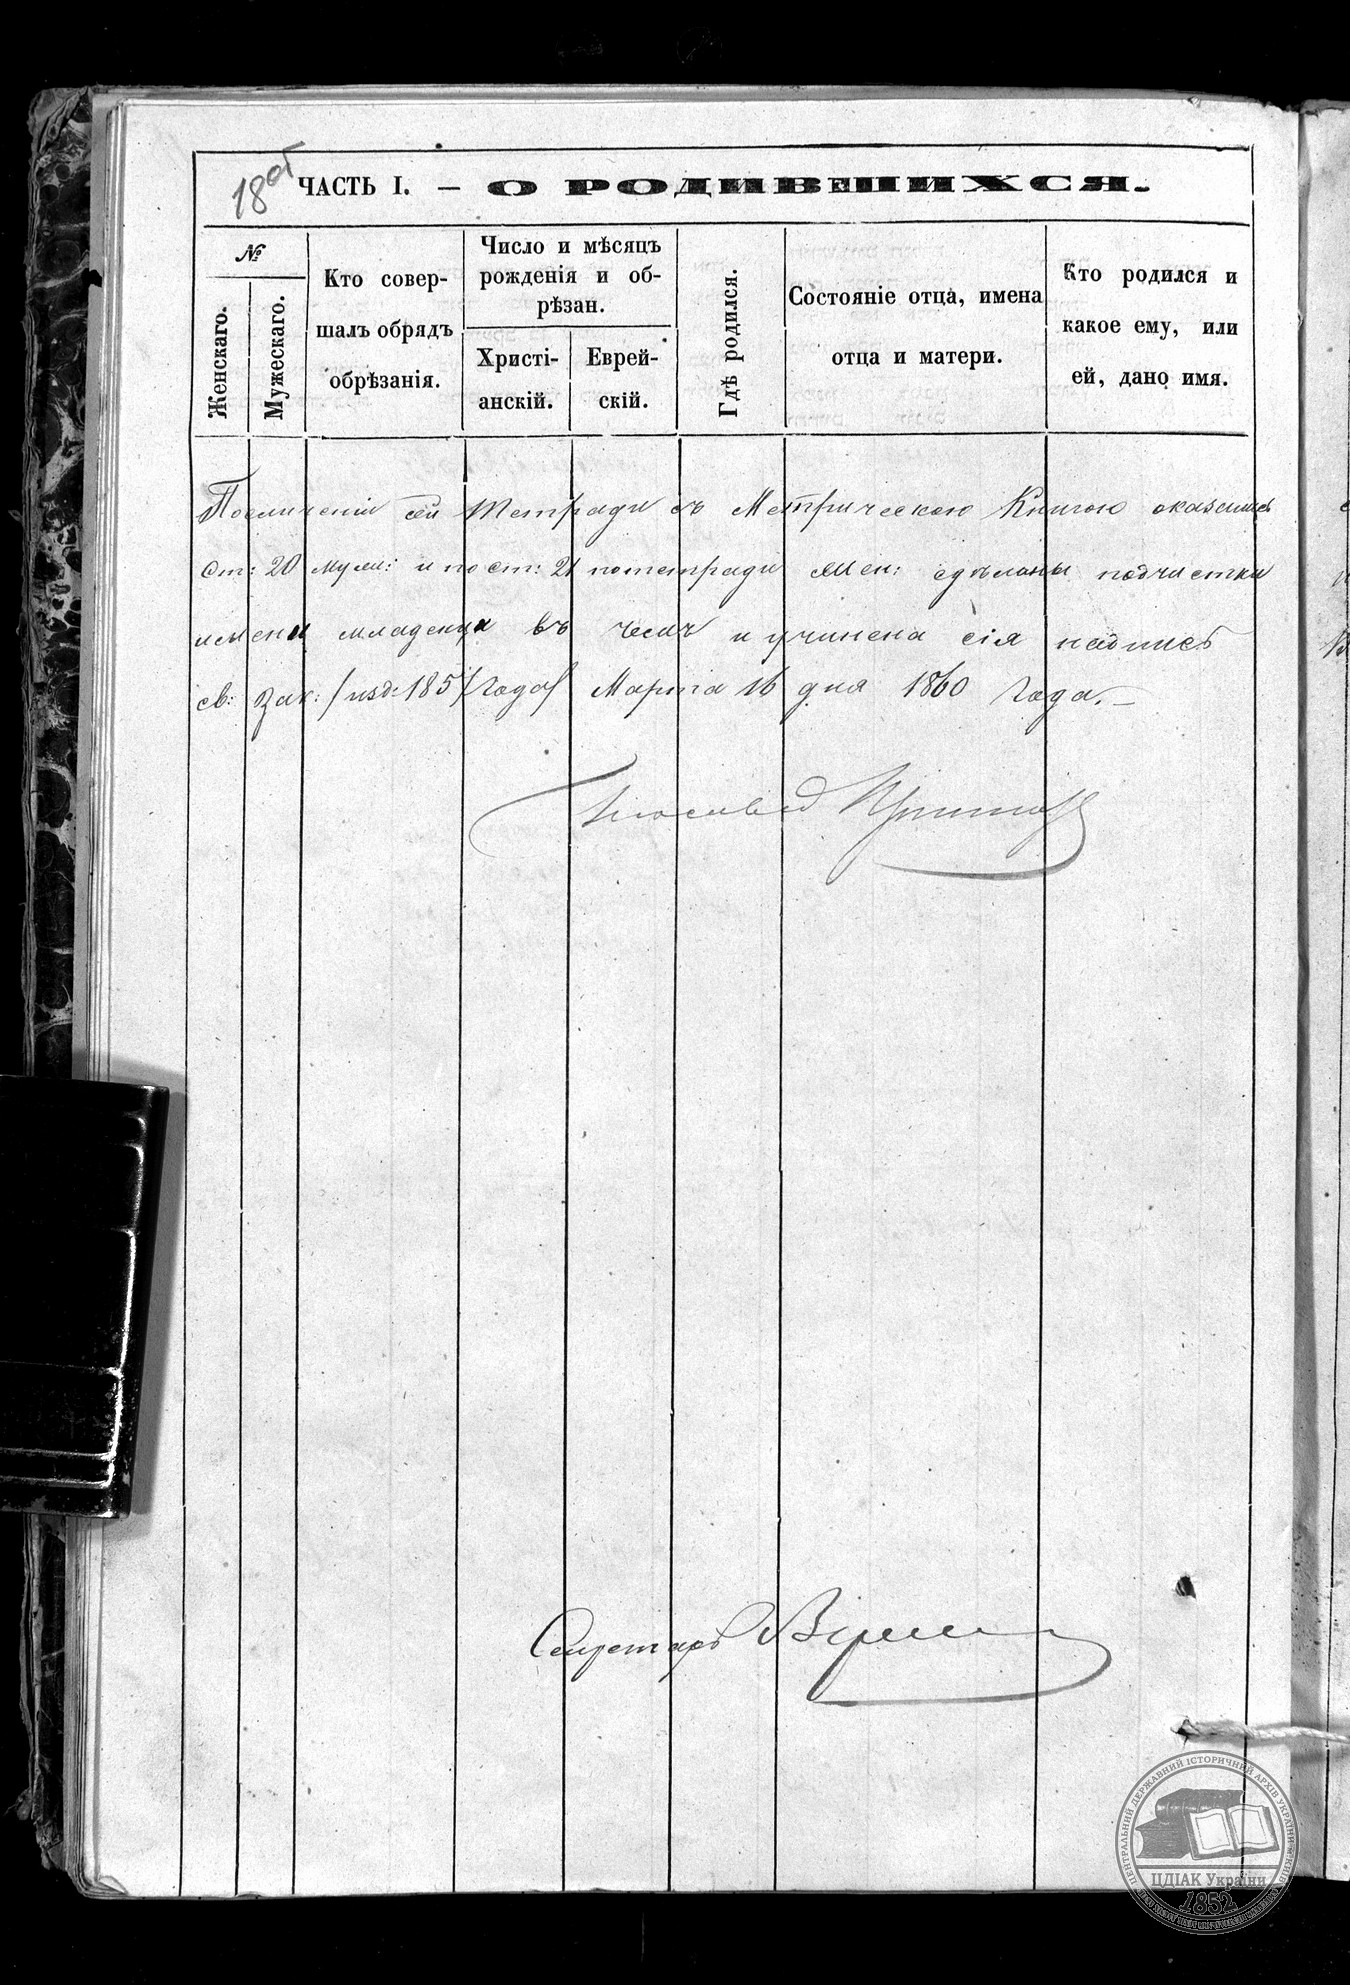 18об
ЧАСТЬ I. — О РОДИВШИХСЯ.
№
Женскаго.
Мужескаго.
Кто совер-
шалъ обрядъ
обрѣзанія.
Число и мѣсяцъ
рожденія и об-
рѣзан.
Христі-
анскій.
Еврей-
скій.
Гдѣ родился.
Состояніе отца, имена
отца и матери.
Кто родился и
какое ему, или
ей, дано имя.
По сличеніи сей тетради съ Метрическою Книгою оказались
ст: 20 муж: и по ст: 21 по тетради жен: сдѣланы подчистки
имени младенца въ чемъ и учинена сія надпись
св: Зак: /изд: 1857 года/ Марта 16 дня 1860 года.—
Секретарь
ЦЕНТРАЛЬНИЙ ДЕРЖАВНИЙ ІСТОРИЧНИЙ АРХІВ УКРАЇНИ
ЦДІАК України
1852